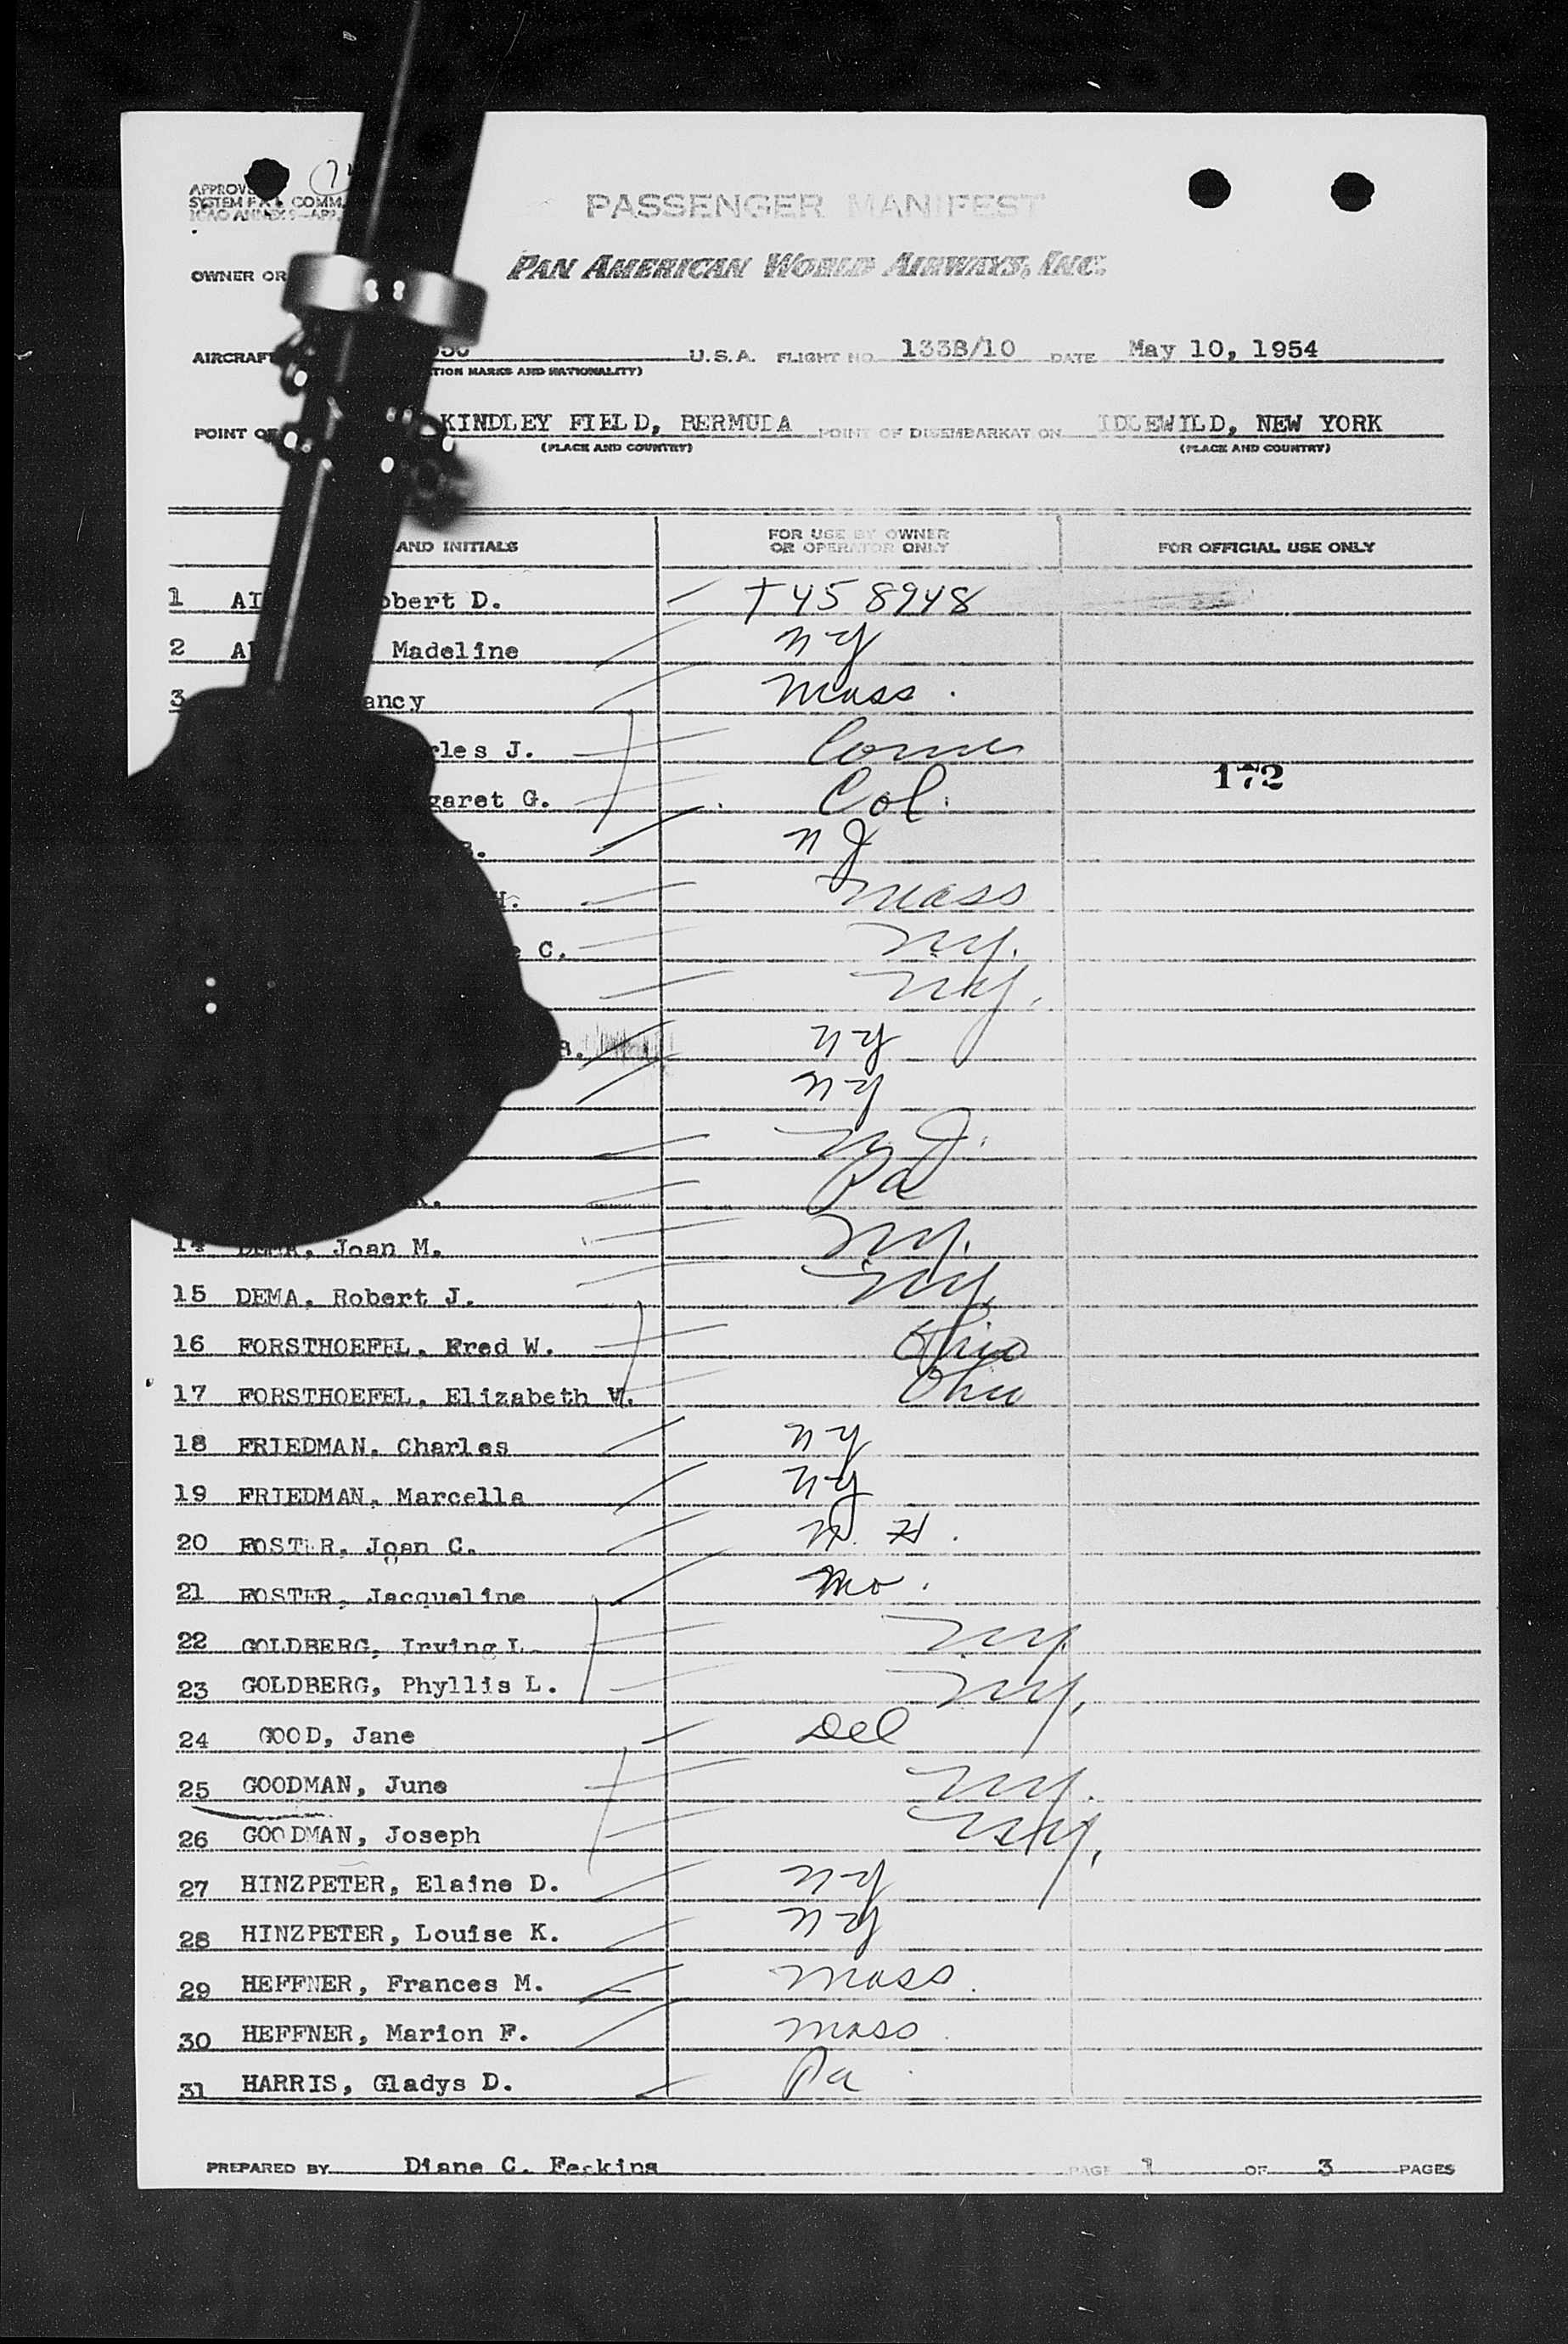 PASSENGER MANIFEST
OWNER OR
PAN AMERICAN WORLD AIRWAYS, INC.
U.S.A. FLIGHT NO. 1338/10 DATE May 10, 1954
MARKS AND NATIONALITY)
POINT KINDLEY FIELD, BERMUDA POINT OF DISEMBARKATION IDLEWILD, NEW YORK
(PLACE AND COUNTRY) (PLACE AND COUNTRY)
AND INITIALS FOR USE BY OWNER OR OPERATOR ONLY FOR OFFICIAL USE ONLY
1 D. T 458948
2 Madeline NY
3 Mass.
J. Conn
G. Col.
172
NJ
Mass
C. NY.
NY.
NY
NY
N.J.
Pa
14 Joan M. NY.
15 DEMA, Robert J. NY.
16 FORSTHOEFEL, Fred W. Ohio
17 FORSTHOEFEL, Elizabeth V. Ohio
18 FRIEDMAN, Charles NY
19 FRIEDMAN, Marcella NY
20 FOSTER, Joan C. N.H.
21 FOSTER, Jacqueline Mo.
22 GOLDBERG, Irving L. NY.
23 GOLDBERG, Phyllis L. NY.
24 GOOD, Jane Del
25 GOODMAN, June NY.
26 GOODMAN, Joseph NY.
27 HINZPETER, Elaine D. NY
28 HINZPETER, Louise K. NY
29 HEFFNER, Frances M. Mass.
30 HEFFNER, Marion F. Mass.
31 HARRIS, Gladys D. Pa
PREPARED BY Diane C. PAGE 1 OF 3 PAGES